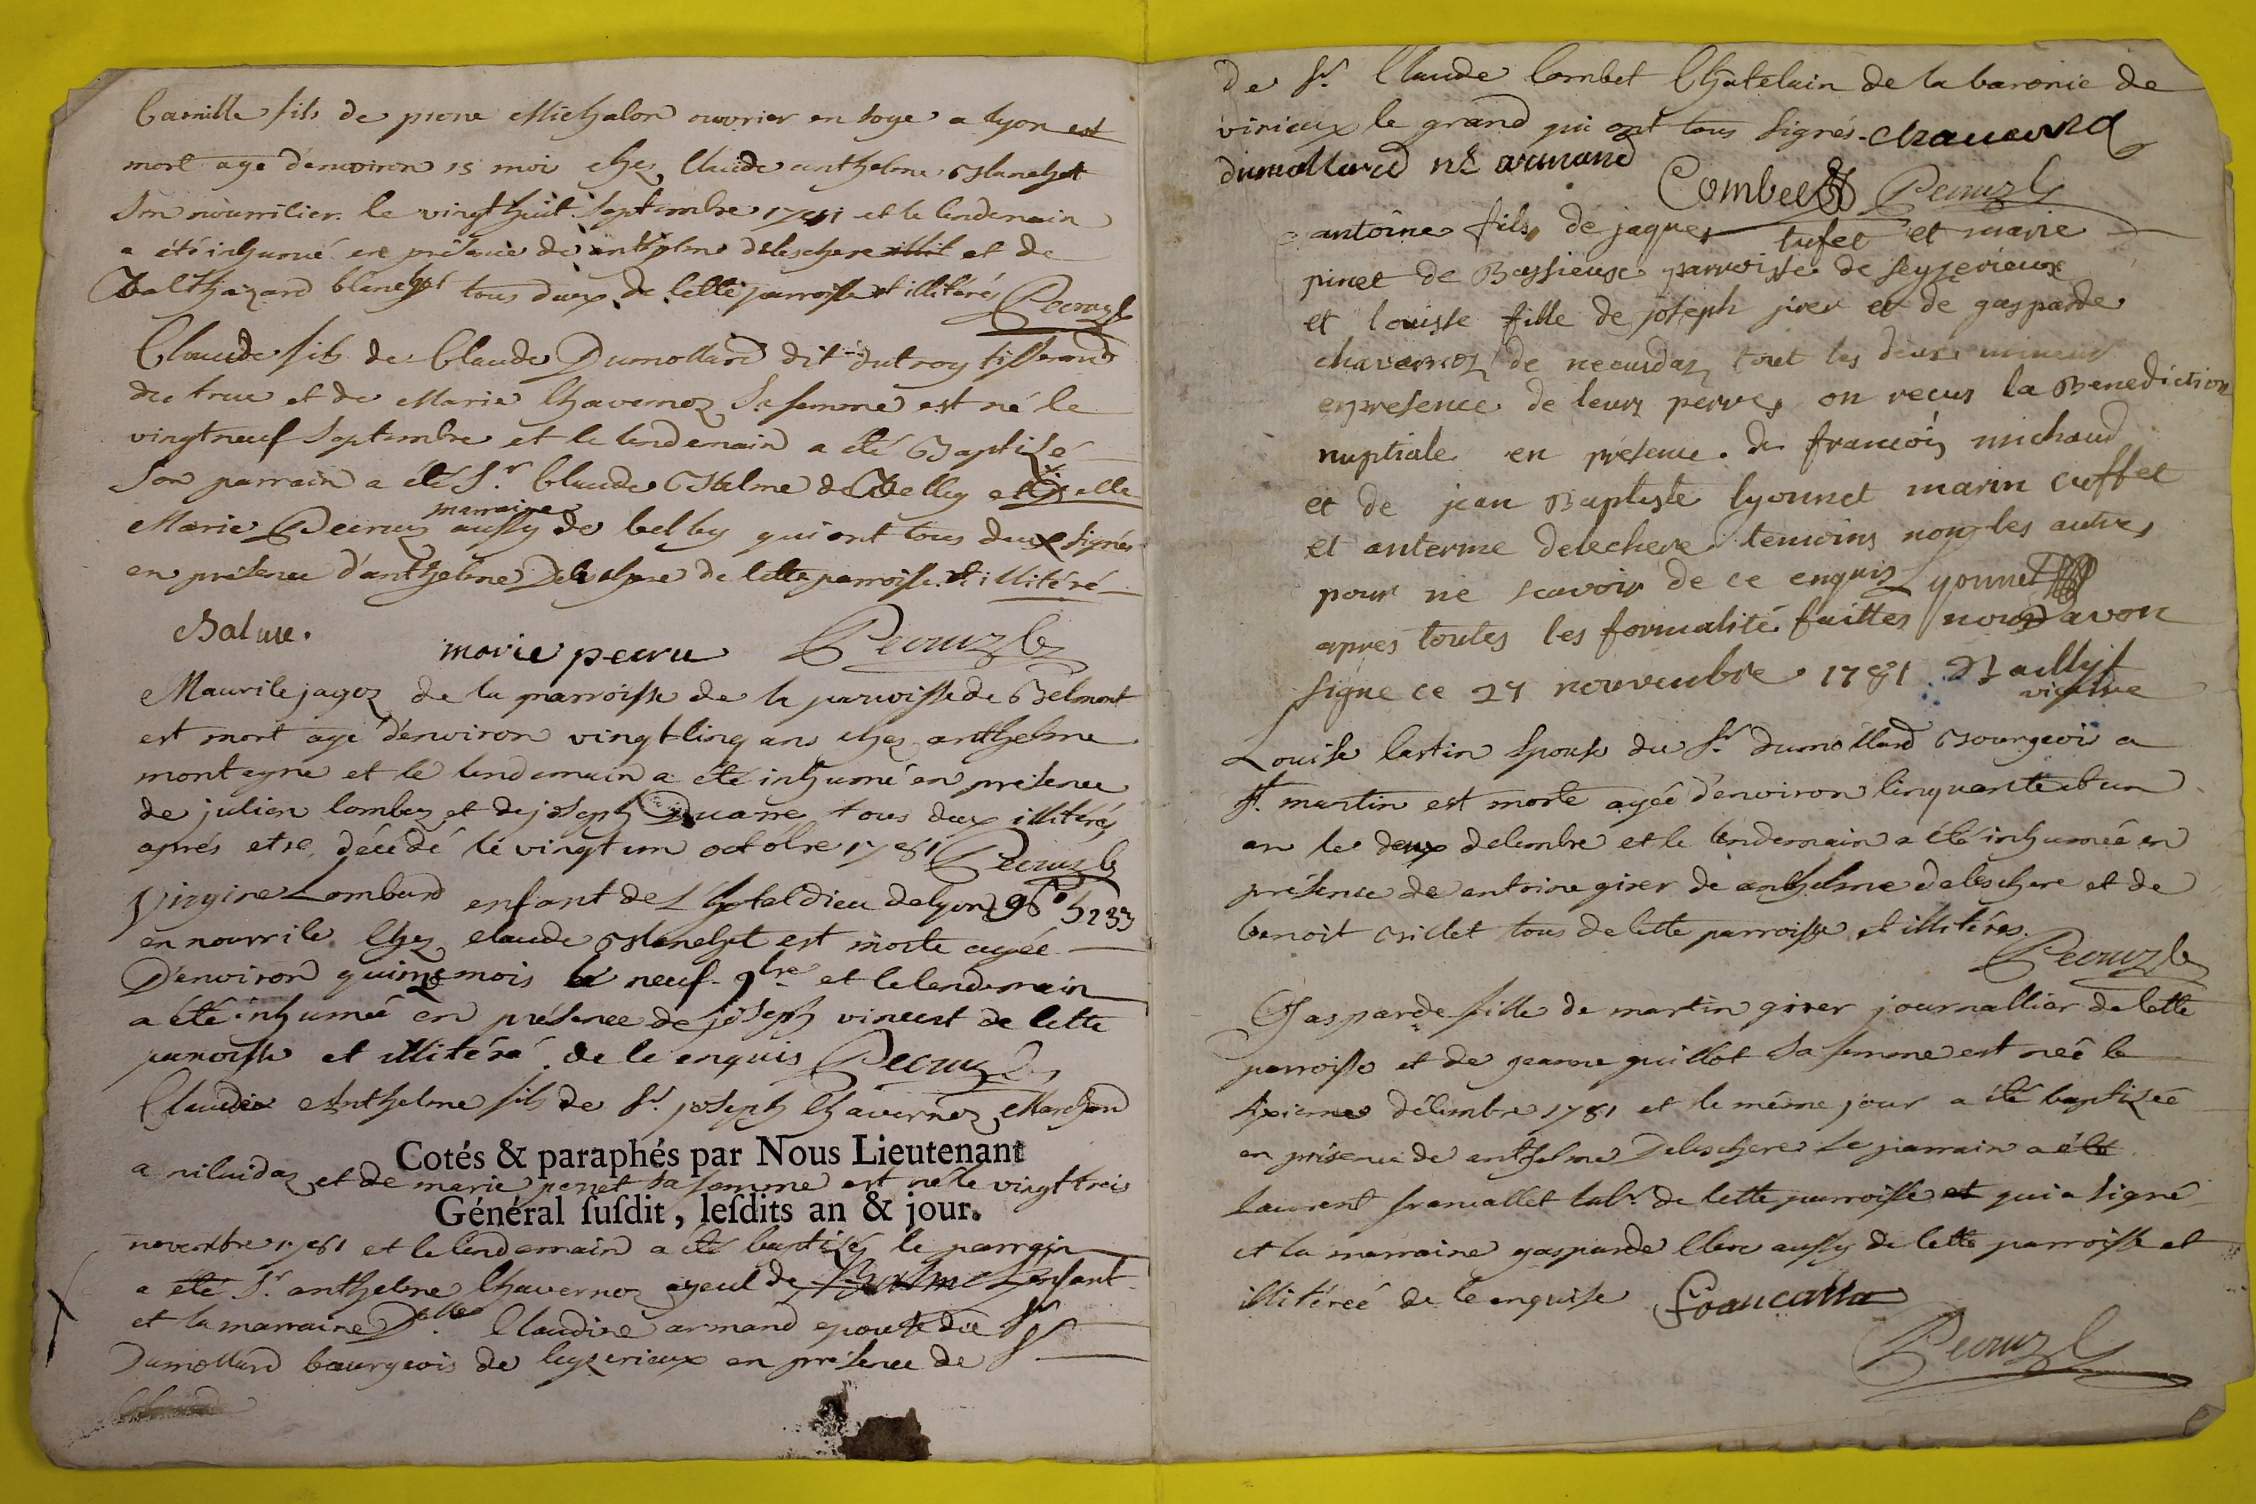 Camille fils de pierre Michalon ouvrier en soye a lyon est
mort agé d'environ 15 moi chez Claude anthelme Blanchet
son nourricier le vingt huit septembre 1781 et le lendemain
a été inhumé en présence de anthelme deleschere et de
Balthazard blanchet tous deux de cette parroisse et illitérés Pecruz Cé
Claude fils de Claude Dumollard dit dutroy tisserand
du truc et de Marie Chavernoz sa femme est né le
vingt neuf septembre et le lendemain a été Baptisé
son parrain a été Sr. Claude Balme de Belley et delle
marraine
Marie Pecruz aussy de belley qui ont tous deux signés
en présence d'anthelme Deleschere de cette parroisse et illitéré
Balme. marie pecru Pecruz Cé
Maurile jagoz de la parroisse de la parroisse de Belmont
est mort agé d'environ vingt cinq ans chez anthelme
montagne et le lendemain a été inhumé en présence
de julien combez et de joseph tous deux illitérés
aprés etre décédé le vingt un octobre 1781 Pecruz Cé
Virgine Lombard enfant de L'hotel dieu de lyon 5233
en nourrice chez claude Blanchet est morte agée
D'environ quinze mois le neuf 9bre et le lendemain
a été inhumée en présence de joseph vincent de cette
parroisse et illitéré de ce enquis Pecruz Cé
Claude Anthelme fils de Sr. joseph Chavernoz Marchand
Cotés & paraphés par Nous Lieutenant
a niluidaz et de marie penet sa femme est né le vingt trois
Général susdit, lesdits an & jour.
novembre 1781 et le lendemain a été baptisé le parrain
a été Sr anthelme Chavernoz ayeul de enfant
et la marraine Delle Claudine armand epouse du Sr
Dumollard bourgeois de ceyzerieux en présence de Sr
de Sr. Claude Combet Chatelain de la baronie de
virieux le grand qui ont tous signés. chavernoz
dumollard né armand
Combet Pecruz Cé
antoine fils de jaques tufet et marie
pinet de Bessieux parroisse de seyzerieux
et louisse fille de joseph jirer et de gasparde
chavernoz de necuidaz tout les deux mineur
enpresence de leurs perres on recus la Benediction
nuptiale en présence de francois michaud
et de jean Baptiste lyonnet marin cuffet
et anterme delechere temoins non les autres
pour ne scavoir de ce enquis Lyonnet
apres toutes les formalité faittes nous avon
signe ce 27 nouvembre 1781 Bailly
vicaire
Louise Castin epouse du Sr. dumollard Bourgeois a
St. martin est morte agée d'environ cinquante et un
an le deux décembre et le lendemain a été inhumée en
présence de antoine girer de anthelme deleschere et de
benoit billet tous de cette parroisse et illitérés.
Pecruz Cé
Gasparde fille de martin girer journallier de cette
parroisse et de jeanne guillot sa femme est née le
sixieme décembre 1781 et le même jour a été baptizée
en présence de anthelme Deleschere Le parrain a été
Laurent francallet labr. de cette parroisse qui a signé
et la marraine gasparde Clerc aussy de cette parroisse et
illitérée de ce enquise francalla
Pecruz Cé